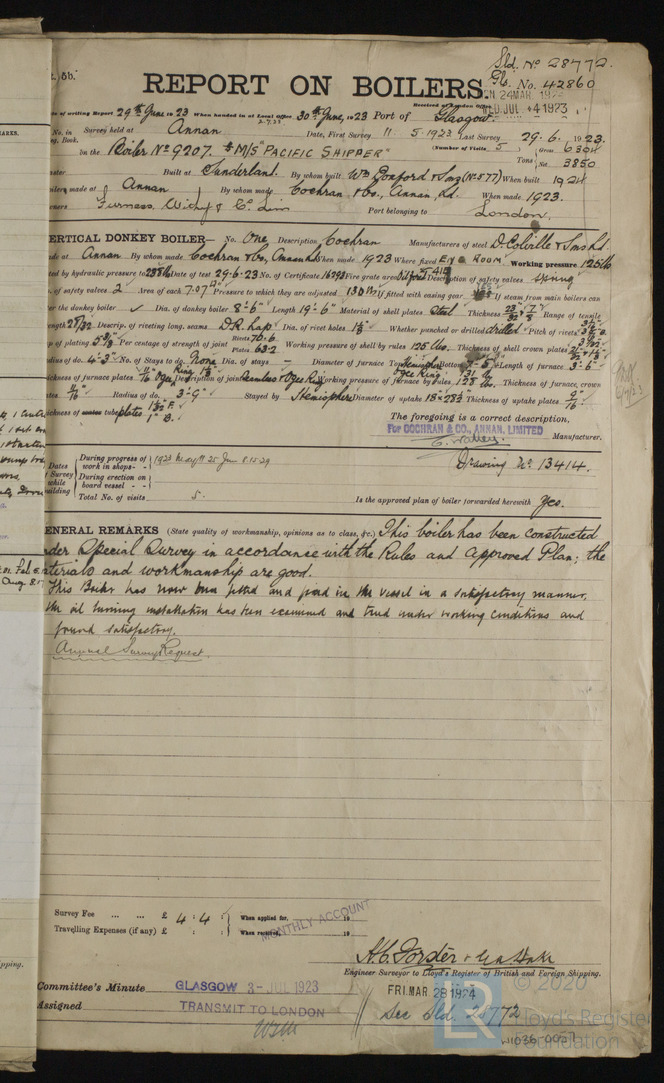 Sld. No 28772.
Gls. No. 42860
REPORT ON BOILERS.
Received at London Office
WED. JUL 4 1923
Date of writing Report 29th June 1923 When handed in at Local Office 30th June, 1923 Port of Glasgow.
No. in Survey held at Annan Date, First Survey 11. 5. 1923 Last Survey 29. 6. 1923.
Book. (Number of Visits 5)
on the Boiler No 9207. M/S "PACIFIC SHIPPER" Tons Gross 6304
Net 3850
Built at Sunderland. By whom built Wm Doxford & Sons (No 577) When built 1924
made at Annan By whom made Cochran & Co., Annan, Ld. When made 1923.
Furness, Withy & Co Lim Port belonging to London.
VERTICAL DONKEY BOILER— No. One Description Cochran Manufacturers of steel D. Colville & Sons Ld.
Made at Annan By whom made Cochran & Co, Annan Ld When made 1923 Where fixed ENG ROOM Working pressure 125lb
tested by hydraulic pressure to 238lb Date of test 29-6-23 No. of Certificate 16293 Fire grate area Description of safety valves Spring
No. of safety valves 2 Area of each 7.07" Pressure to which they are adjusted 130 lb If fitted with easing gear yes If steam from main boilers can
enter the donkey boiler ✓ Dia. of donkey boiler 8'-6" Length 19'-6" Material of shell plates Steel Thickness Range of tensile
strength 28/32 Descrip. of riveting long. seams D.R. Lap Dia. of rivet holes 1 1/8" Whether punched or drilled drilled Pitch of rivets
Lap of plating 5 3/8 Per centage of strength of joint Rivets 70.6 Plates 63.2 Working pressure of shell by rules 125 lbs. Thickness of shell crown plates
Radius of do. 4'-3" No. of Stays to do. None Dia. of stays - Diameter of furnace Top Hemisphere Bottom Length of furnace 3'-6"
Thickness of furnace plates Description of joint Seamless & Ogee Ring Working pressure of furnace by rules 128 lbs. Thickness of furnace crown
plates Radius of do. 3'-9" Stayed by Hemisphere Diameter of uptake Thickness of uptake plates 9/16"
Thickness of tube plates
The foregoing is a correct description,
For COCHRAN & CO., ANNAN, LIMITED
Manufacturer.
Dates of Survey while building
During progress of work in shops - - 1923 May 11 25 Jun 8.15.29
During erection on board vessel - -
Total No. of visits 5.
Drawing No 13414.
Is the approved plan of boiler forwarded herewith Yes.
GENERAL REMARKS (State quality of workmanship, opinions as to class, &c.) This boiler has been constructed
under Special Survey in accordance with the Rules and Approved Plan; the
materials and workmanship are good.
This Boiler has now been fitted and in the vessel in a satisfactory manner,
the oil burning installation has been examined and tried under working conditions and
found satisfactory.
Annual Survey Request.
Survey Fee ... ... £ 4 : 4 : When applied for, 19
Travelling Expenses (if any) £ : : When received, 19
MONTHLY ACCOUNT
Engineer Surveyor to Lloyd's Register of British and Foreign Shipping.
Committee's Minute GLASGOW 3-JUL 1923
FRI. MAR 28 1924
Assigned TRANSMIT TO LONDON
See Sld 28772
© 2020
Lloyd's Register
Foundation
W1036-0057